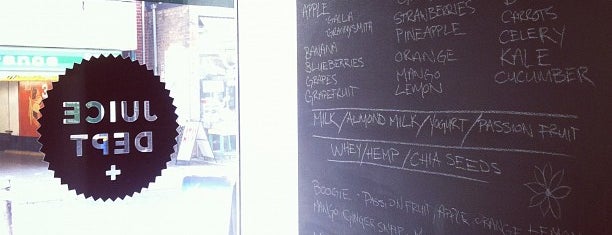 JUICE
DEPT
+
APPLE
GALLA
GRANNYSMITH
BANANA
BLUEBERRIES
GRAPES
GRAPEFRUIT
STRAWBERRIES
PINEAPPLE
ORANGE
MANGO
LEMON
CARROTS
CELERY
KALE
CUCUMBER
MILK/ALMOND MILK/YOGURT/PASSION FRUIT
WHEY/HEMP/CHIA SEEDS
BOOGIE • PASSIONFRUIT/APPLE ORANGE LEMON
MANGO GINGER SNAP